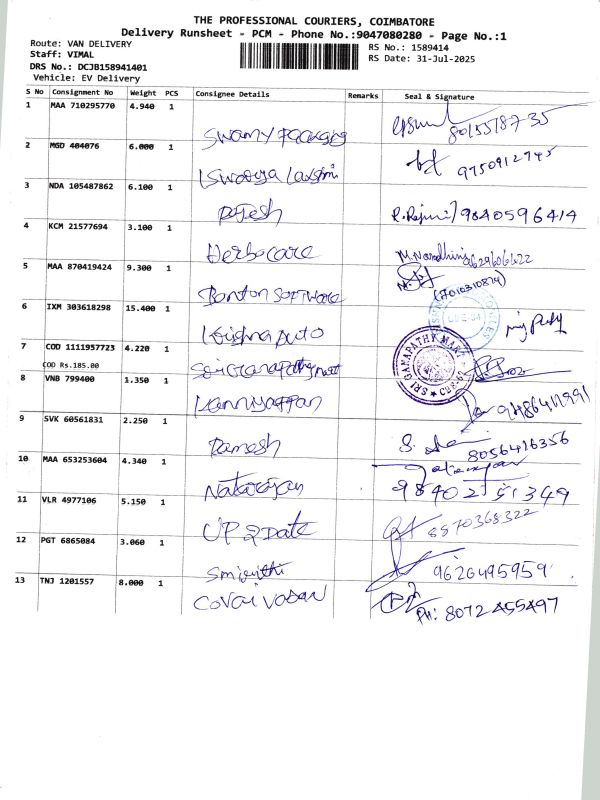 THE PROFESSIONAL COURIERS, COIMBATORE
Delivery Runsheet - PCM - Phone No.:9047080280 - Page No.:1
Route: VAN DELIVERY
RS No.: 1589414
Staff: VIMAL
RS Date: 31-Jul-2025
DRS No.: DCJB158941401
Vehicle: EV Delivery
S No Consignment No Weight PCS Consignee Details Remarks Seal & Signature
1 MAA 710295770 4.940 1
Swamy 8015518735
2 MGD 404076 6.000 1
Iswarya Laxshmi 9750912745
3 NDA 105487862 6.100 1
Rajesh 9840596414
4 KCM 21577694 3.100 1
Herbocare M. Nandhini 9629606622
5 MAA 870419424 9.300 1
(7010310874)
Software
6 IXM 303618298 15.400 1
Krishna Auto
7 COD 1111957723 4.220 1
SRI GANAPATHY MART
COD Rs.185.00
Sri Ganapathy mart
8 VNB 799400 1.350 1
Kanniyappan
9 SVK 60561831 2.250 1
Ramesh 8056416356
10 MAA 653253604 4.340 1
Natarajan 9840251349
11 VLR 4977106 5.150 1
UP 2 Date 8870368322
12 PGT 6865084 3.060 1
9626495959
13 TNJ 1201557 8.000 1
Covai vasan PH: 8072455497